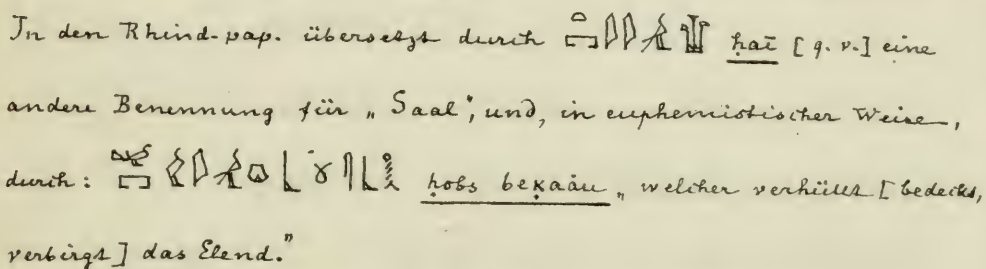 In den Rhind-pap. übersetzt durch ḥaī [q. v.] eine
andere Benennung für „Saal“, und, in euphemistischer Weise,
durch: ḥobs beχaàu „welcher verhüllt [bedeckt,
verbirgt] das Elend.”